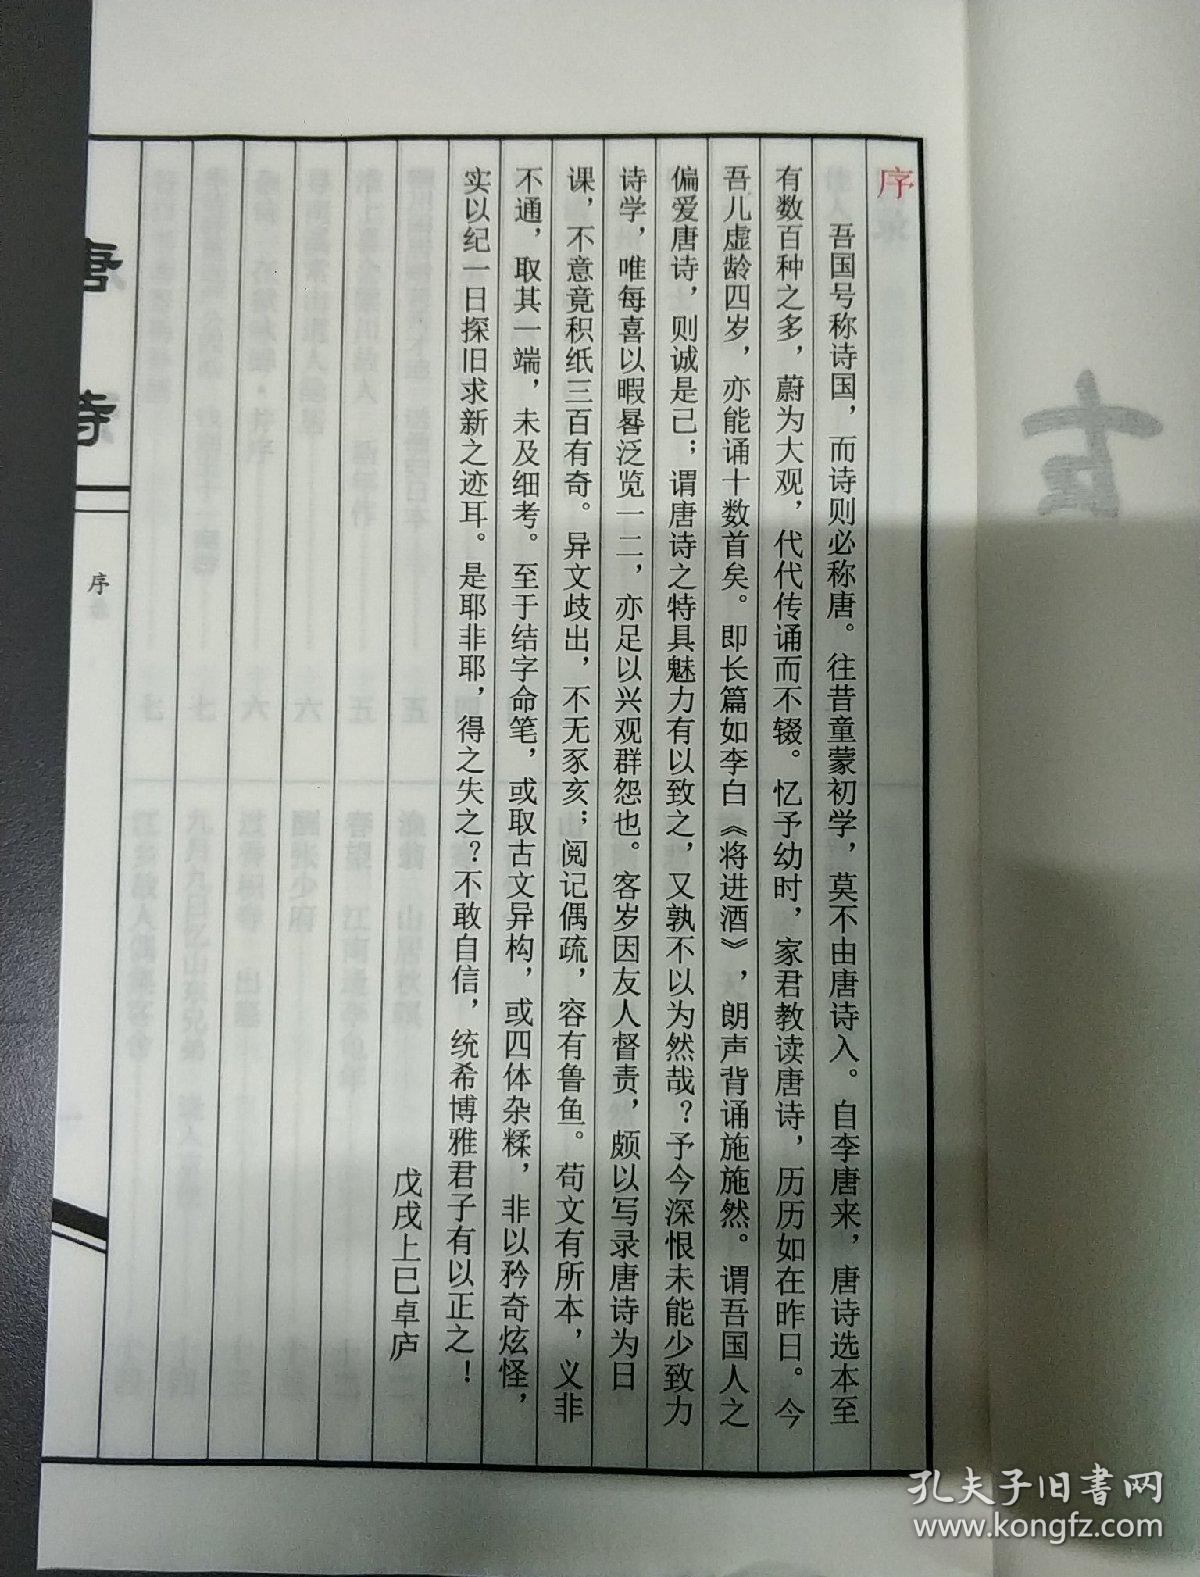 序
吾国号称诗国，而诗则必称唐。往昔童蒙初学，莫不由唐诗入。自李唐来，唐诗选本至
有数百种之多，蔚为大观，代代传诵而不辍。忆予幼时，家君教读唐诗，历历如在昨日。今
吾儿虚龄四岁，亦能诵十数首矣。即长篇如李白《将进酒》，朗声背诵施施然。谓吾国人之
偏爱唐诗，则诚是已；谓唐诗之特具魅力有以致之，又孰不以为然哉？予今深恨未能少致力
诗学，唯每喜以暇晷泛览一二，亦足以兴观群怨也。客岁因友人督责，颇以写录唐诗为日
课，不意竟积纸三百有奇。异文歧出，不无豕亥；阅记偶疏，容有鲁鱼。苟文有所本，义非
不通，取其一端，未及细考。至于结字命笔，或取古文异构，或四体杂糅，非以矜奇炫怪，
实以纪一日探旧求新之迹耳。是耶非耶，得之失之？不敢自信，统希博雅君子有以正之！
戊戌上巳卓庐
唐诗
序
孔夫子旧书网
www.kongfz.com